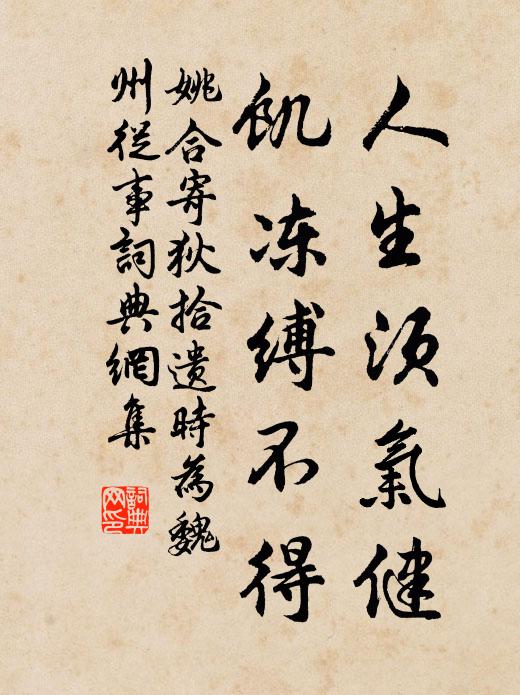 人生须氣健
飢冻缚不得
姚合寄狄拾遗時為魏
州從事詞典網集
詞典网印